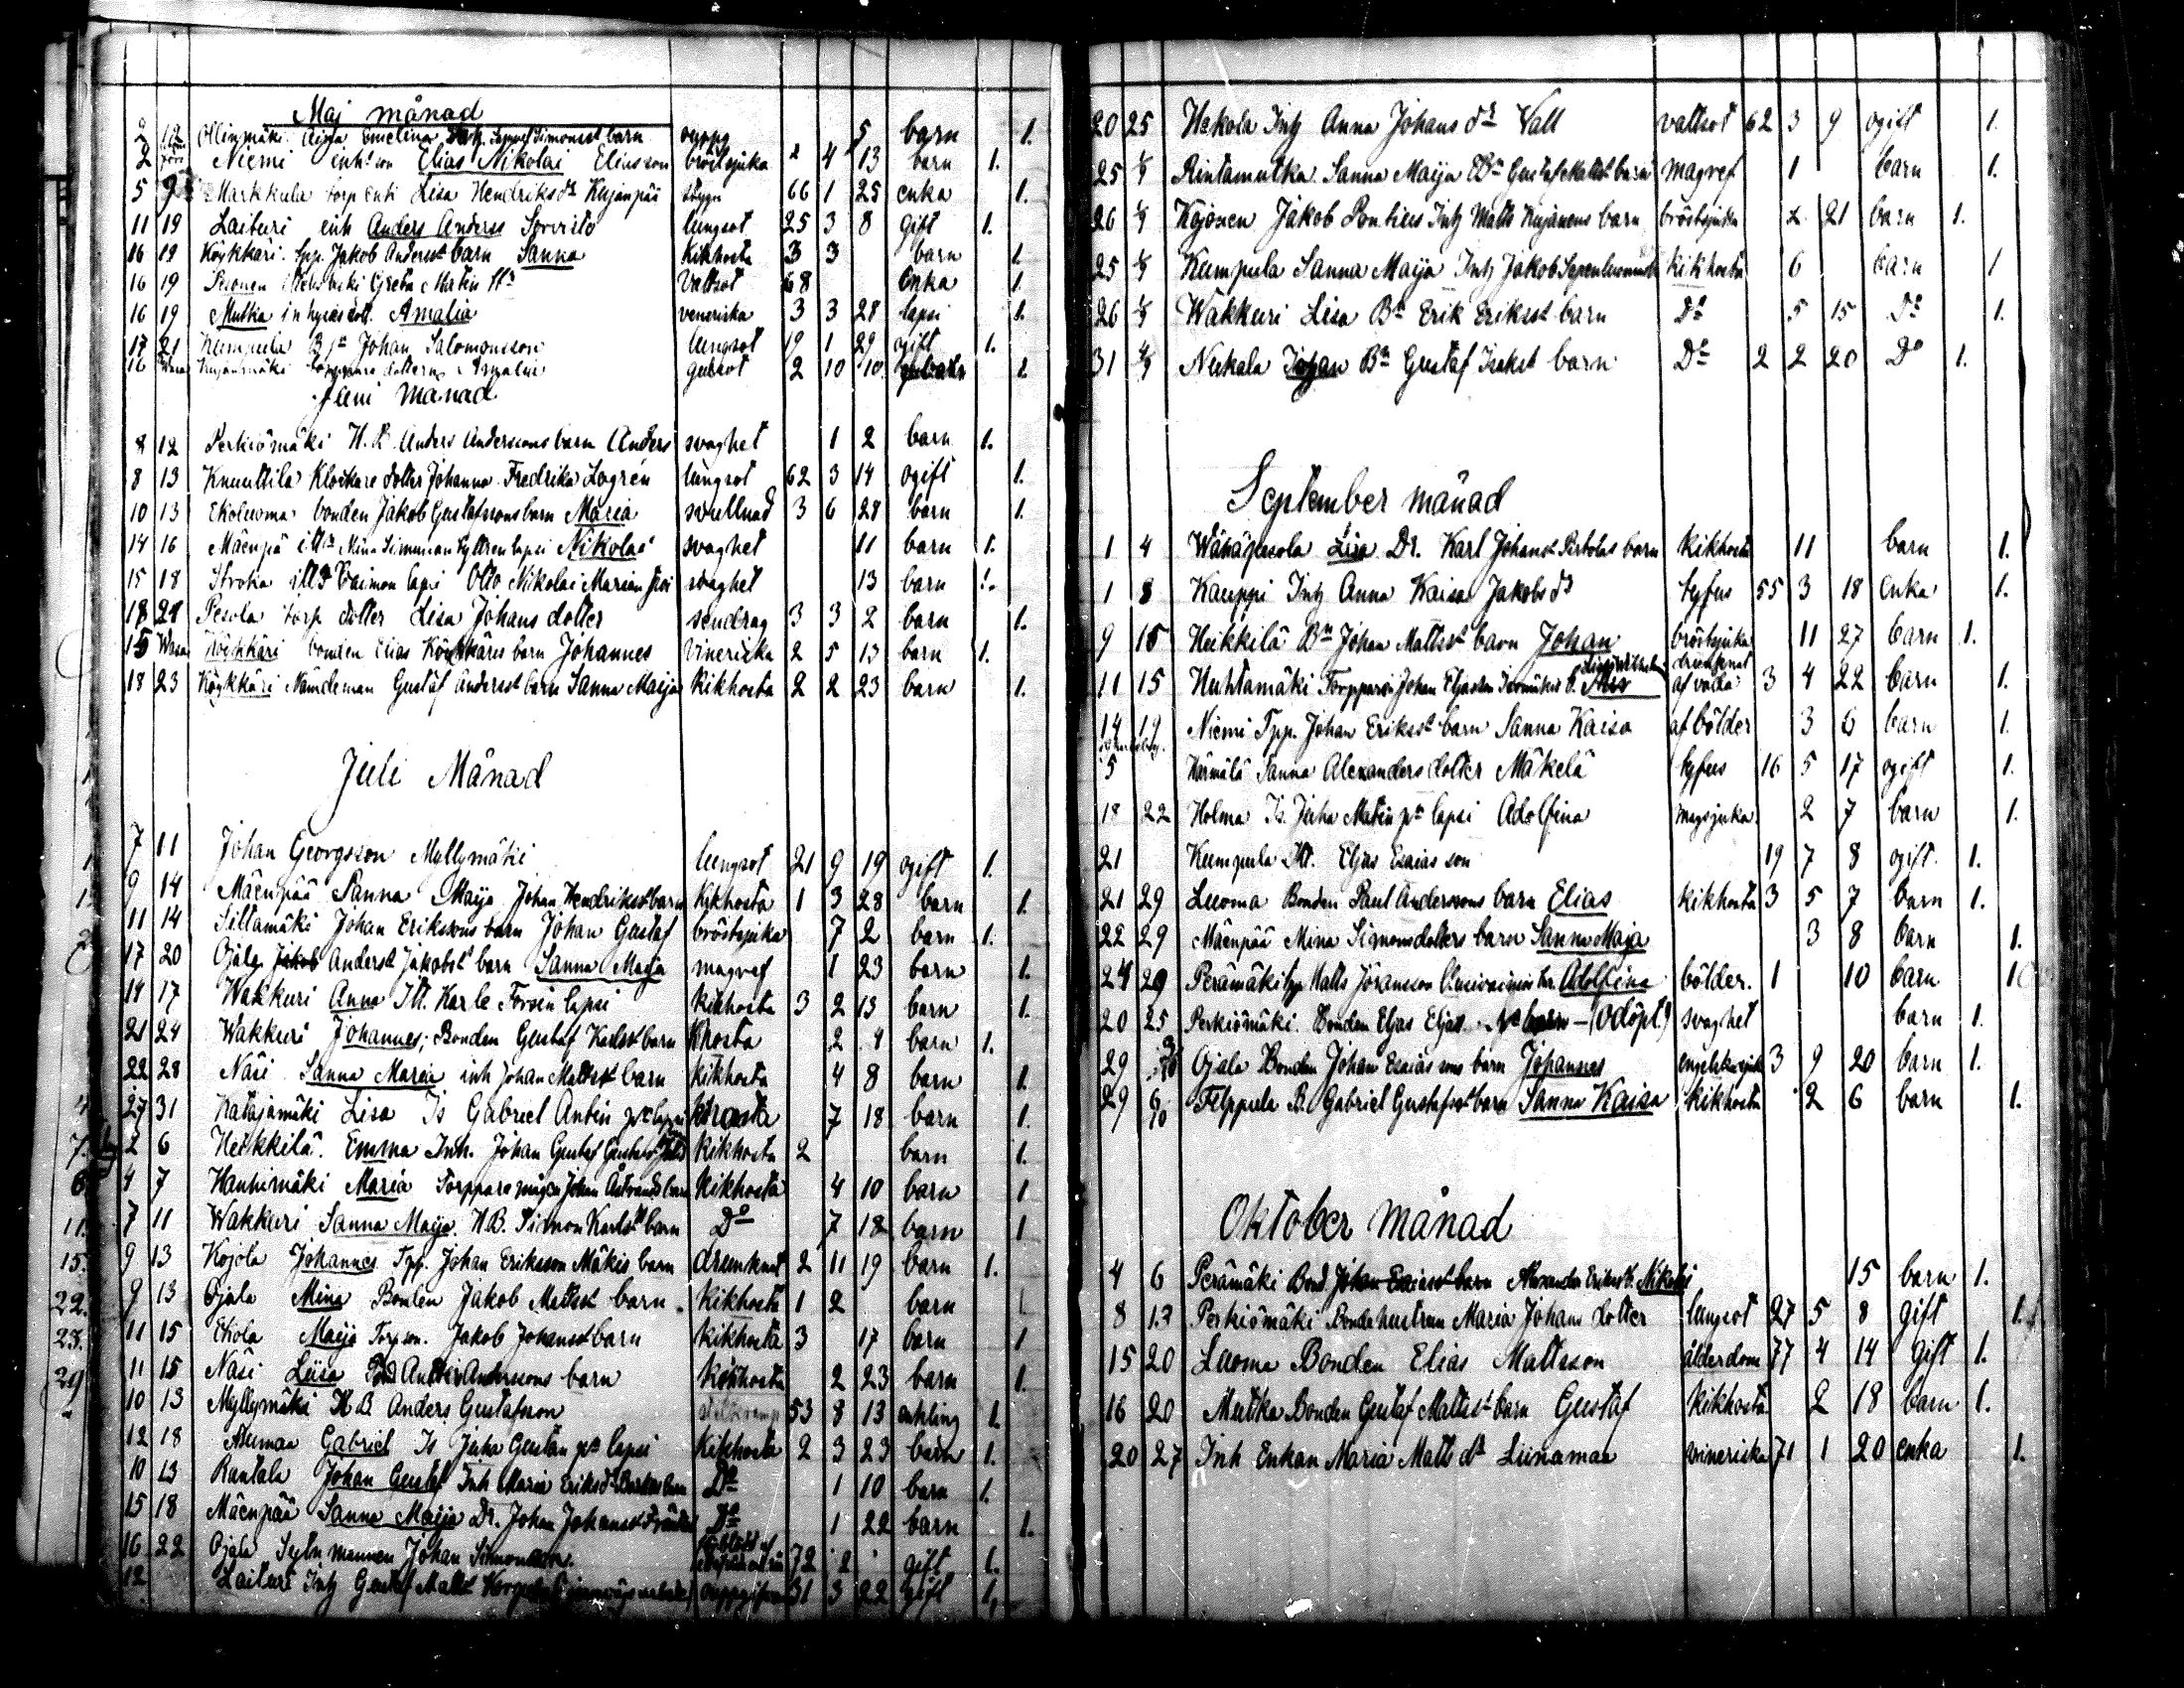 Maj månad
2 12 Ollinmäki Emelina Simonsst barn ouppg 5 barn 1.
2 Niemi inh: son Elias Nikolai Eliasson bröstsjuka 2 4 13 barn 1.
5 9 Markkula torp enk Lisa Hendriksdr Kujanpää 66 1 25 enka 1.
11 19 Laituri inh Anders Anderss Sorvisto lungsot 25 3 8 gift 1.
16 19 Köykkäri Tpp. Jakob Andersst barn Sanna Kikhosta 3 3 barn 1
16 19 Greta Vattsot 68 Enka 1
16 19 Mutka Amalia veneriska 3 3 28 lapsi 1.
17 21 Kumpula Johan Salomonsson lungsot 19 1 29 ogift 1.
16 Kujanmäki dotterns Amalia gulsot 2 10 10 1.
Juni månad
8 12 Perkiömäki H.B. Anders Anderssons barn Anders svaghet 1 2 barn 1.
8 13 Knuuttila Klockare dotter Johanna Fredrika Logrén lungsot 62 3 14 ogift 1.
10 13 Ekoluoma bonden Jakob Gustafssons barn Maria svullnad 3 6 28 barn 1.
14 16 Mäenpä Mina Simunan tyttren lapsi Nikolai svaghet 11 barn 1.
15 18 lapsi Otto Nikolai svaghet 13 barn 1.
18 21 Pesola torp dotter Lisa Johans dotter sendrag 3 3 2 barn 1.
15 Wasa Köykkäri bonden Elias Köykkäris barn Johannes Vineriska 2 5 13 barn 1.
18 23 Köykkäri Nämdeman Gustaf Andersst barn Sanna Maija Kikhosta 2 2 23 barn 1.
Juli Månad
7 11 Johan Georgsson Myllymäki lungsot 21 9 19 ogift 1.
9 14 Mäenpää Sanna Maija Johan Hendrikst barn Kikhosta 1 3 28 barn 1.
11 14 Sillamäki Johan Erikssons barn Johan Gustaf bröstsjuka 7 2 barn 1.
17 20 Ojala Jakob Anderst Jakobst barn Sanna Maija magref 1 23 barn 1.
14 17 Wakkuri Anna Itt. Karle lapsi Kikhosta 3 2 13 barn 1.
21 24 Wakkuri Johannes, Bonden Gustaf Karlst barn Khosta 2 4 barn 1.
22 28 Näsi Sanna Maria inh Johan Mattsst barn Kikhosta 4 8 barn 1.
27 31 Katajamäki Lisa Is Gabriel Antin lapsi 7 18 barn 1.
2 6 Heikkilä. Emma Inh. Johan Gustaf Kikhosta 2 barn 1.
4 7 Hauhimäki Maria Torppare Johan barn Kikhosta 4 10 barn 1
7 11 Wakkuri Sanna Maija H.B. Simon Karlst barn Do 7 18 barn 1
9 13 Kojola Johannes Tpp. Johan Eriksson Mäkis barn drunknat 2 11 19 barn 1.
9 13 Ojala Mina Bonden Jakob Mattsst barn Kikhosta 1 2 barn 1
11 15 Ekola Maija Torp son. Jakob Johansst barn Kikhosta 3 17 barn 1
11 15 Näsi Liisa Anderssons barn Kikhosta 2 23 barn 1.
10 13 Myllymäki H B. Anders Gustafsson 53 8 13 enkling 1.
12 18 Gabriel Is Juha Gustan pn lapsi Kikhosta 2 3 23 barn 1.
10 13 Rantala Johan Gustaf Inh Maria Eriksdr barn Do 1 10 barn 1.
15 18 Mäenpää Sanna Maija Dr. Johan Johansst Do 1 22 barn 1.
16 22 Ojala Sytn mannen Johan Simonsson 72 2 gift 1.
12 Laituri Inh Gustaf Matts 31 3 22 gift 1.
20 25 Hakola Inh Anna Johans dr Vall vattsot 62 3 9 ogift 1.
25 1/9 Rintamutka Sanna Maija Bn Gustaf Mattst barn magref 1 barn 1.
26 1/9 Kojonen Jakob Pontius Inh Matts Kujanens barn bröstsjuka 2 21 barn 1.
25 1/9 Kumpula Sanna Maija Inh Jakob Kikhosta 6 barn 1
26 1/9 Wakkuri Lisa Bn Erik Eriksst barn Do 5 15 Do 1.
31 4/9 Nukala Johan Bn Gustaf Isakst barn Do 2 2 20 Do 1.
September månad
1 4 Wähäpesola Lisa Dr. Karl Johanst barn Kikhosta 11 barn 1.
1 8 Kauppi Inh Anna Kaisa Jakobs dr tyfus 55 3 18 enka 1.
9 15 Heikkilä Bn Johan Mattsst barn Johan bröstsjuka 11 27 barn 1.
11 15 Huhtamäki Torppare Johan af våda 3 4 22 barn 1.
14 19 Niemi Tpp. Johan Eriksst barn Sanna Kaisa af bölder 3 6 barn 1.
5 Sanna Alexanders dotter Mäkelä tyfus 16 5 17 ogift 1.
18 22 Holma Is. Juha Matin pn lapsi Adolfina magsjuka 2 7 barn 1.
21 Kumpula Itt. Eljas Esaias son 19 7 8 ogift 1.
21 29 Luoma Bonden Paul Anderssons barn Elias Kikhosta 3 5 7 barn 1.
22 29 Mäenpää Mina Simonsdotters barn Sanna Maja 3 8 barn 1.
24 29 Perämäki tpp Matts Adolfina bölder. 1 10 barn 1
20 25 Perkiömäki. Bonden Eljas Eljass. barn - (Odöpt.) svaghet barn 1.
29 Ojala Bonden Johan Esaias sons barn Johannes engelska sjuk 3 9 20 barn 1.
29 6/10 Filppula B. Gabriel Gustafsst barn Sanna Kaisa Kikhosta 2 6 barn 1.
Oktober månad
4 6 Perämäki Bond Johan Esaiasst barn Alexander Nikolai 15 barn 1.
8 13 Perkiömäki Bondehustrun Maria Johans dotter lungsot 27 5 8 gift 1.
15 20 Luoma Bonden Elias Mattsson ålderdom 77 4 14 Gift 1.
16 20 Mutka Bonden Gustaf Mattsst barn Gustaf Kikhosta 2 18 barn 1.
20 27 Inh Enkan Maria Matts dr Liinamaa vineriska 71 1 20 enka 1.